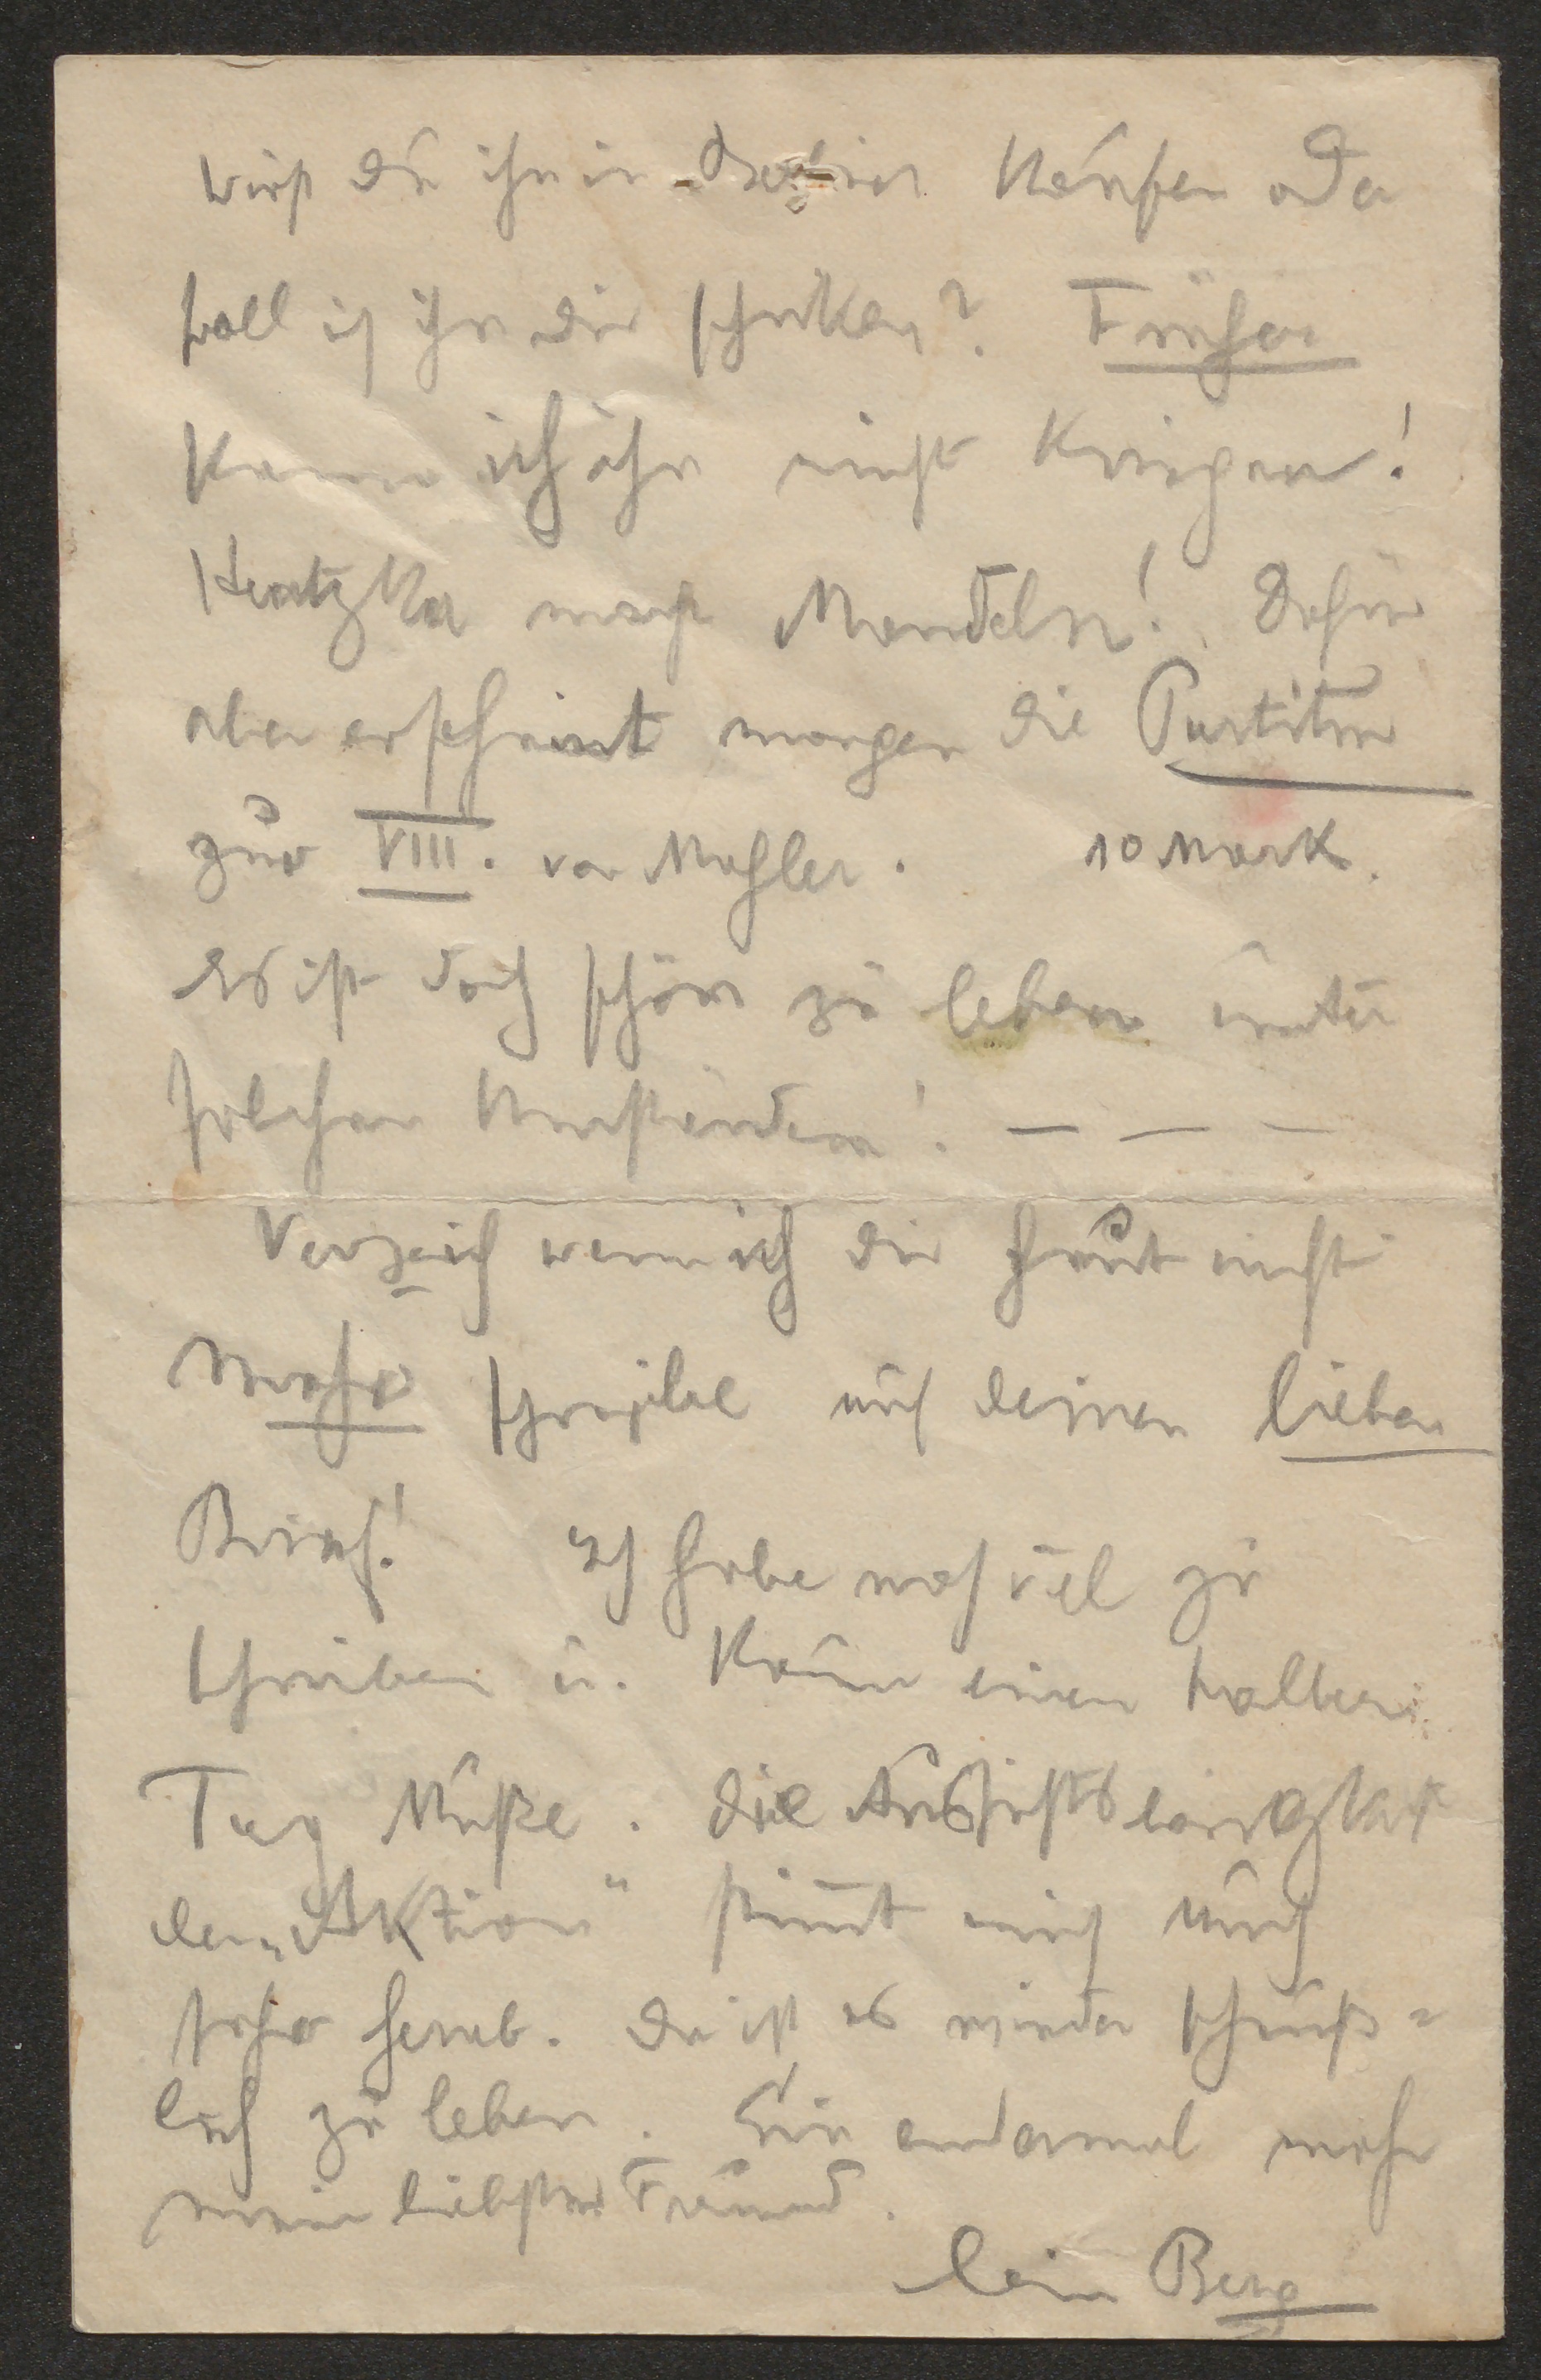 wirst du ihn in Berlin kaufen oder
soll ich ihn dir schicken? Früher
kann ich ihn nicht kriegen!
Hertzka macht Mandeln! Dafür
aber erscheint morgen die Partitur
zur VIII. von Mahler. 10 Mark.
Es ist doch schön zu leben unter
solchen Umständen! — — —
Verzeih wenn ich dir heut nicht
mehr schreibe auf deinen lieben
Brief! Ich habe noch viel zu
schreiben u. kaum einen halben
Tag Muße. Die Aussichtslosigkeit
der „Aktion" stimmt mich auch
sehr herab. Da ist es wieder scheuß=
lich zu leben. Ein andermal mehr
mein liebster Freund.
Dein Berg